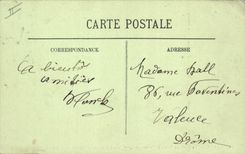 CARTE POSTALE
CORRESPONDANCE
ADRESSE
Madame Hall
86, rue Faventines
Valence
Drôme
à bientôt
amitiés